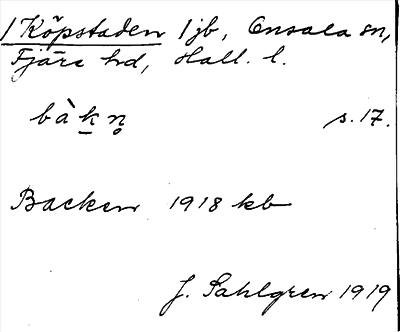 1 Köpstaden 1 jb, Onsala sn,
Fjäre hd, Hall. l.
bàk̠n̥ s. 17.
Backen 1918 kb
J. Sahlgren 1919